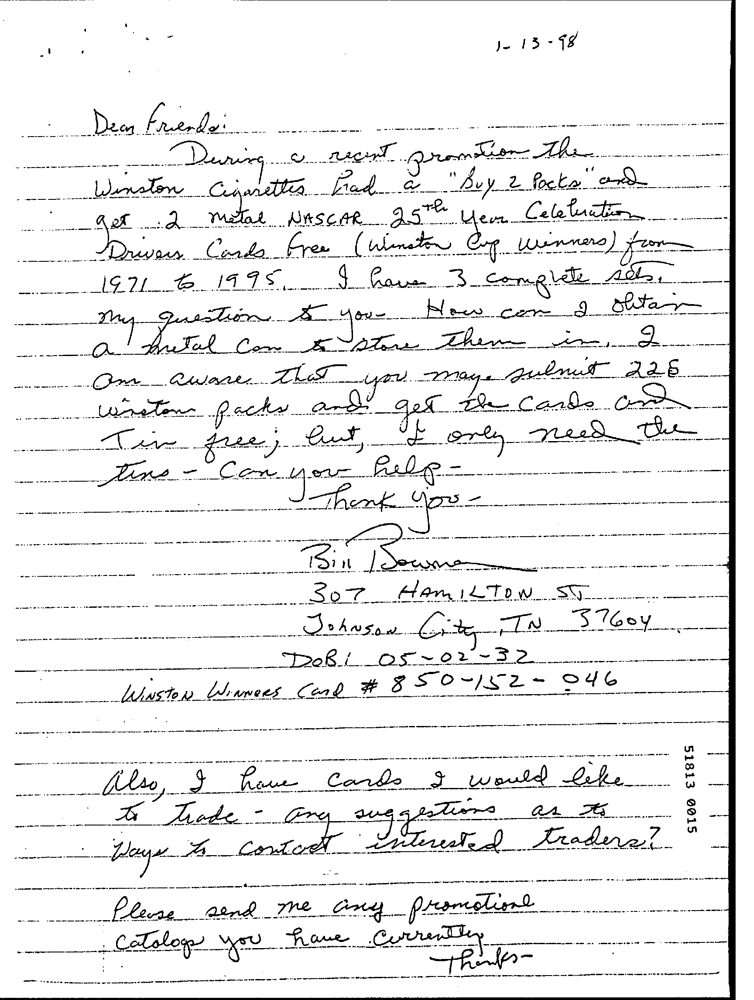 1-13-98
Dear Friends:
During a recent promotion the
Winston Cigarettes had a "Buy 2 Packs" and
get 2 metal NASCAR 25th Year Celebration
Drivers Cards Free (Winston Cup Winners) from
1971 to 1995. I have 3 complete sets.
My question to you How can I obtain
a metal can to store them in. I
am aware that you may submit 225
Winston packs and get the cards and
Tin free; but, I only need the
tins - Can you help -
Thank you -
Bill Bowman
307 HAMILTON ST
JOHNSON City, TN 37604
DOB: 05-02-32
WINSTON WINNERS Card # 850-152-046
Also, I have cards I would like
to trade - any suggestions as to
ways to contact interested traders?
Please send me any promotional
catalogs you have currently
Thanks-
51813 0015